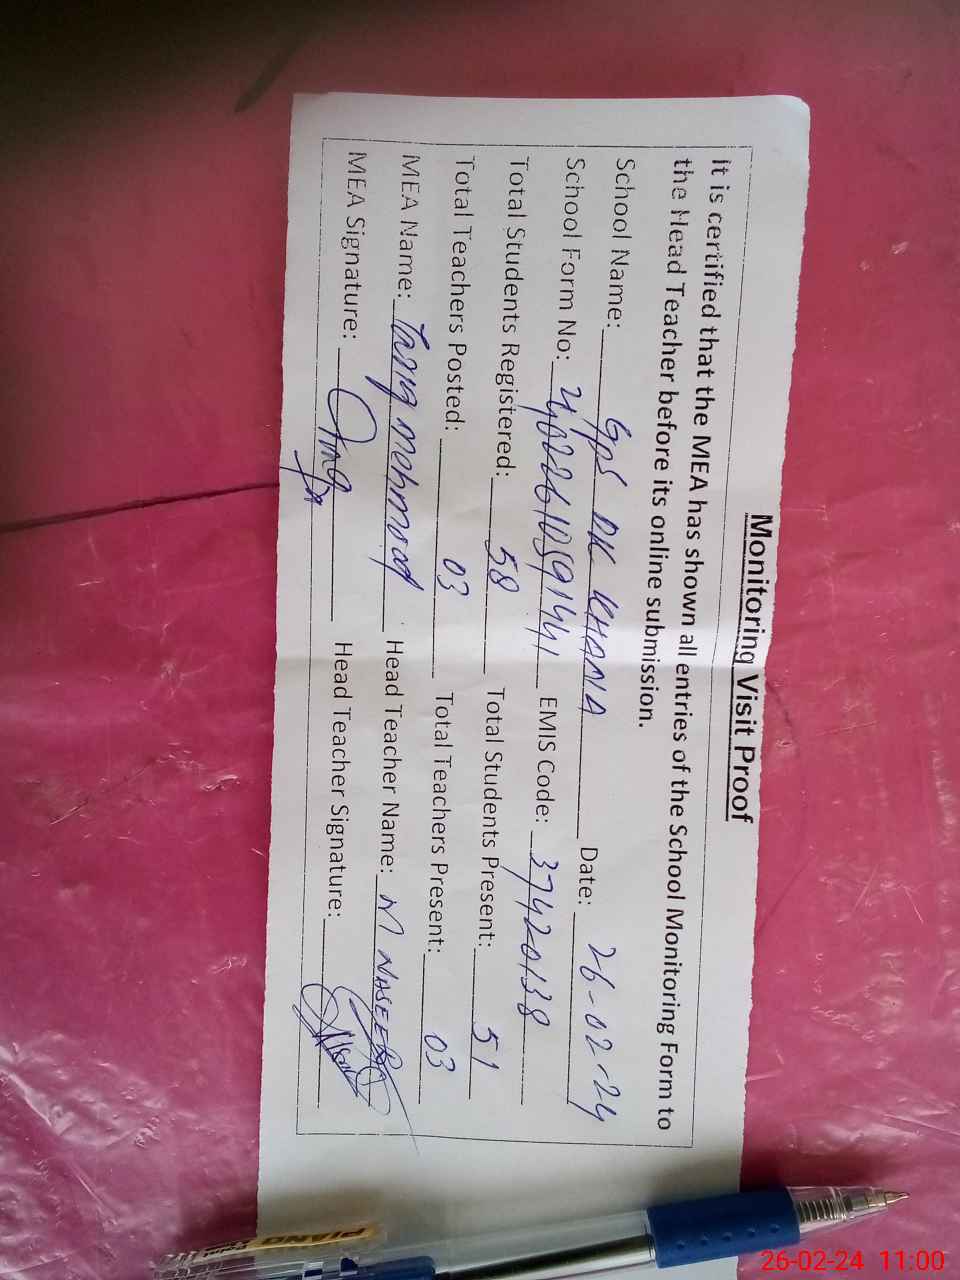 Monitoring Visit Proof
It is certified that the MEA has shown all entries of the School Monitoring Form to
the Head Teacher before its online submission.
School Name: GPS DK KHANA Date: 26-02-24
School Form No: EMIS Code: 37420138
Total Students Registered: 58 Total Students Present: 51
Total Teachers Posted: 03 Total Teachers Present: 03
MEA Name: Tariq mehmood Head Teacher Name: M NASEER
MEA Signature: Head Teacher Signature:
PIANO
Point
26-02-24 11:00